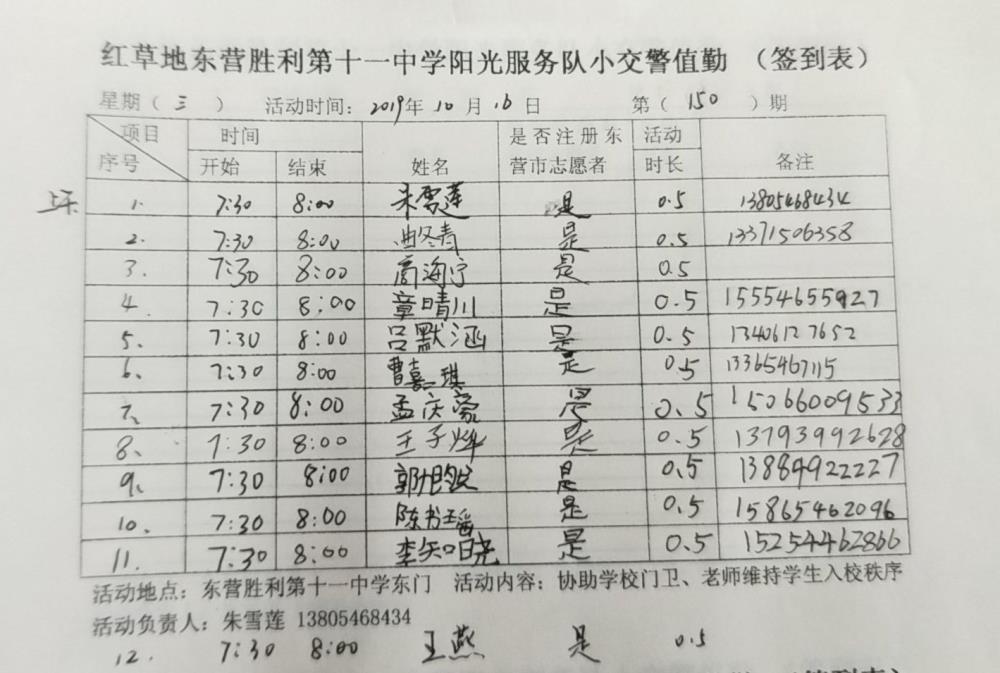 红草地东营胜利第十一中学阳光服务队小交警值勤 （签到表）
星期（ 三 ） 活动时间：2019年 10 月 16 日 第（ 150 ）期
项目 时间 姓名 是否注册东 活动 备注
序号 开始 结束 营市志愿者 时长
1. 7:30 8:00 朱雪莲 是 0.5 13805468434
2. 7:30 8:00 曲冬青 是 0.5 13371506358
3. 7:30 8:00 商海宁 是 0.5
4 7:30 8:00 章晴川 是 0.5 15554655927
5. 7:30 8:00 吕默涵 是 0.5 13406127652
6. 7:30 8:00 曹嘉琪 是 0.5 13365467115
7、 7:30 8:00 孟庆豪 是 0.5 15066009533
8、 7:30 8:00 王子烨 是 0.5 13793992628
9、 7:30 8:00 是 0.5 13884922227
10. 7:30 8:00 陈书瑶 是 0.5 15865462096
11. 7:30 8:00 李知晓 是 0.5 15254462866
活动地点：东营胜利第十一中学东门 活动内容：协助学校门卫、老师维持学生入校秩序
活动负责人：朱雪莲 13805468434
12. 7:30 8:00 王燕 是 0.5